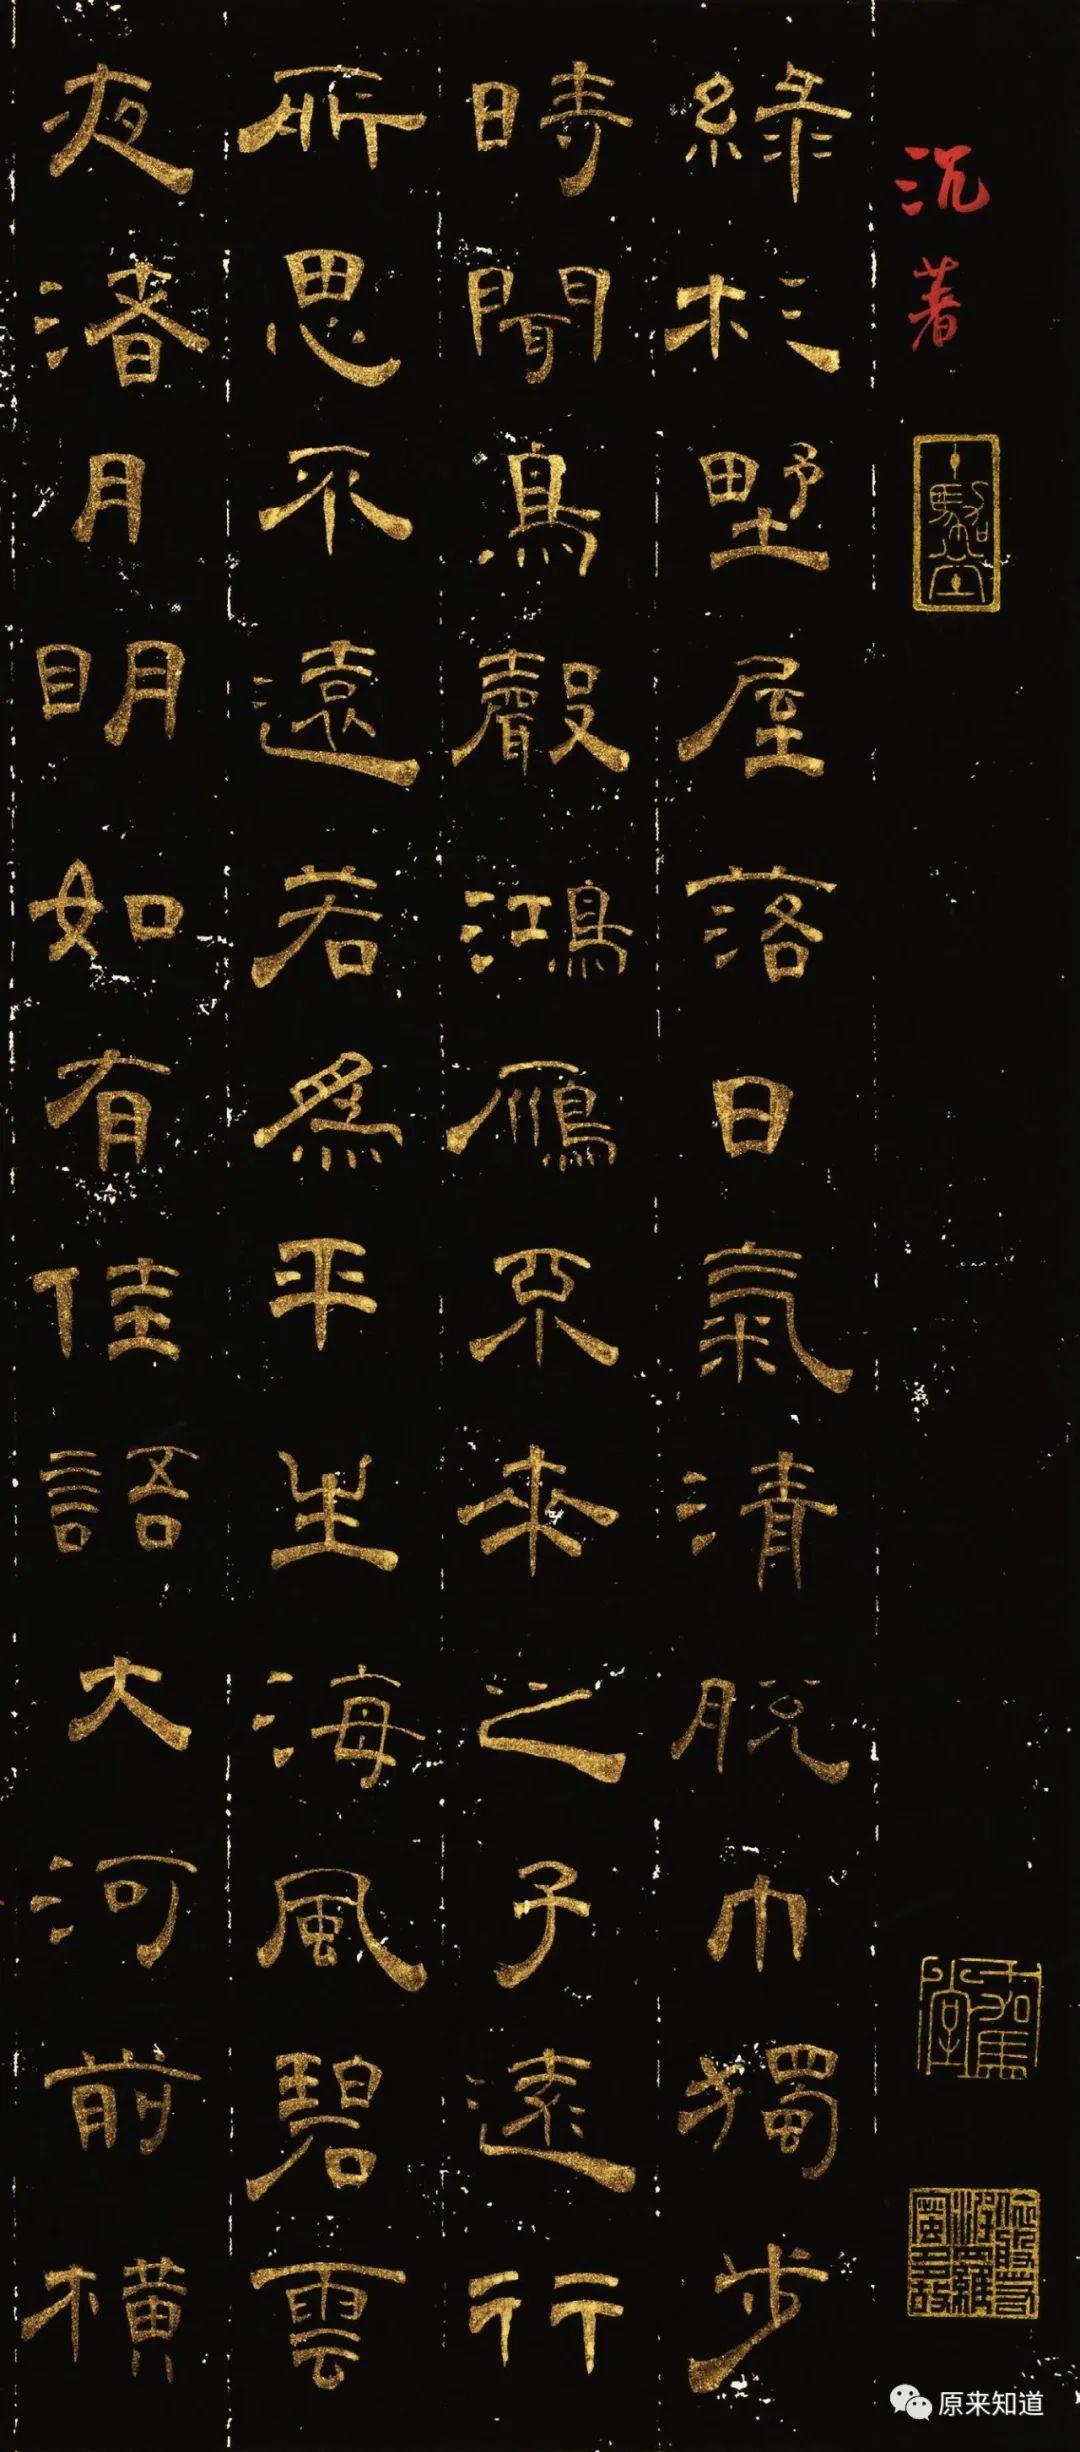 沉著
綠杉野屋落日氣清脫巾獨步
時聞鳥聲鴻鴈不來之子遠行
所思不遠若為平生海風碧雲
夜渚月明如有佳語大河前橫
原来知道